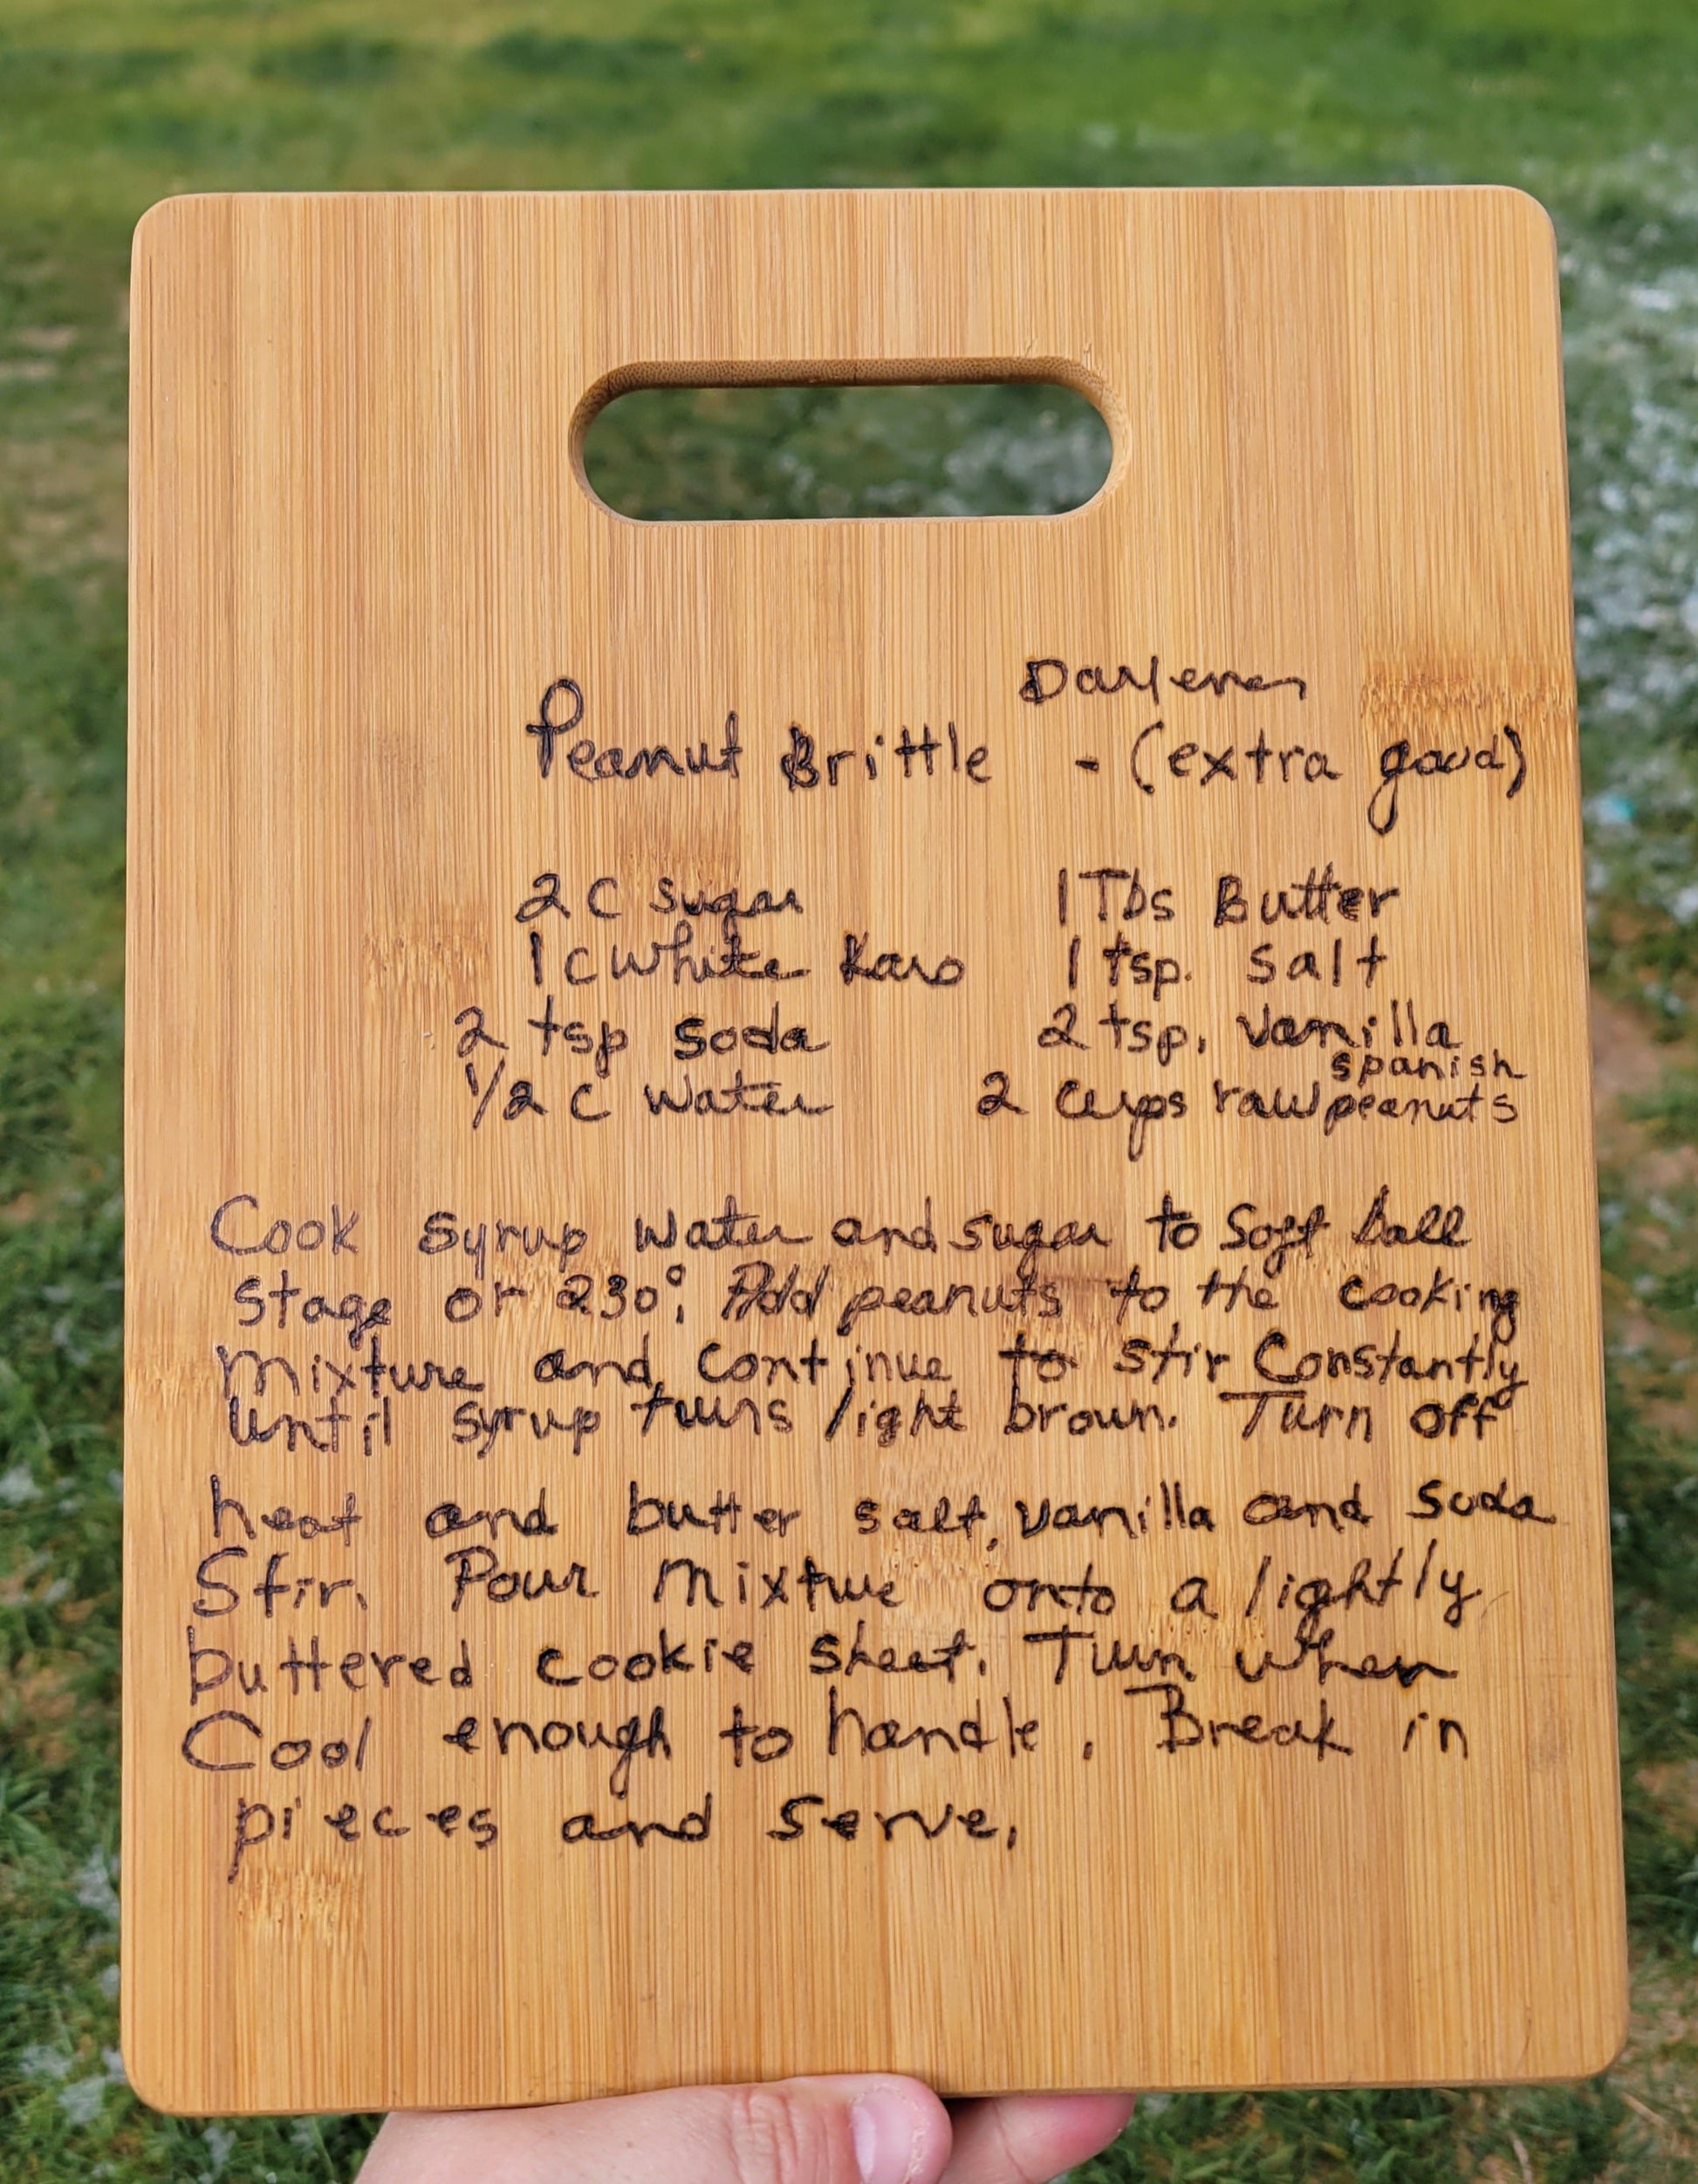 Darlenes
Peanut Brittle - (extra good)
2 C sugar 1 Tbs Butter
1 C White Karo 1 tsp. salt
2 tsp soda 2 tsp. vanilla
1/2 C Water 2 cups raw spanish peanuts
Cook syrup water and sugar to Soft ball
stage or 230°. Add peanuts to the cooking
mixture and continue to stir Constantly
until syrup turns light brown. Turn off
heat and butter salt, vanilla and soda
Stir. Pour mixture onto a lightly
buttered cookie sheet. Turn when
Cool enough to handle. Break in
pieces and serve.